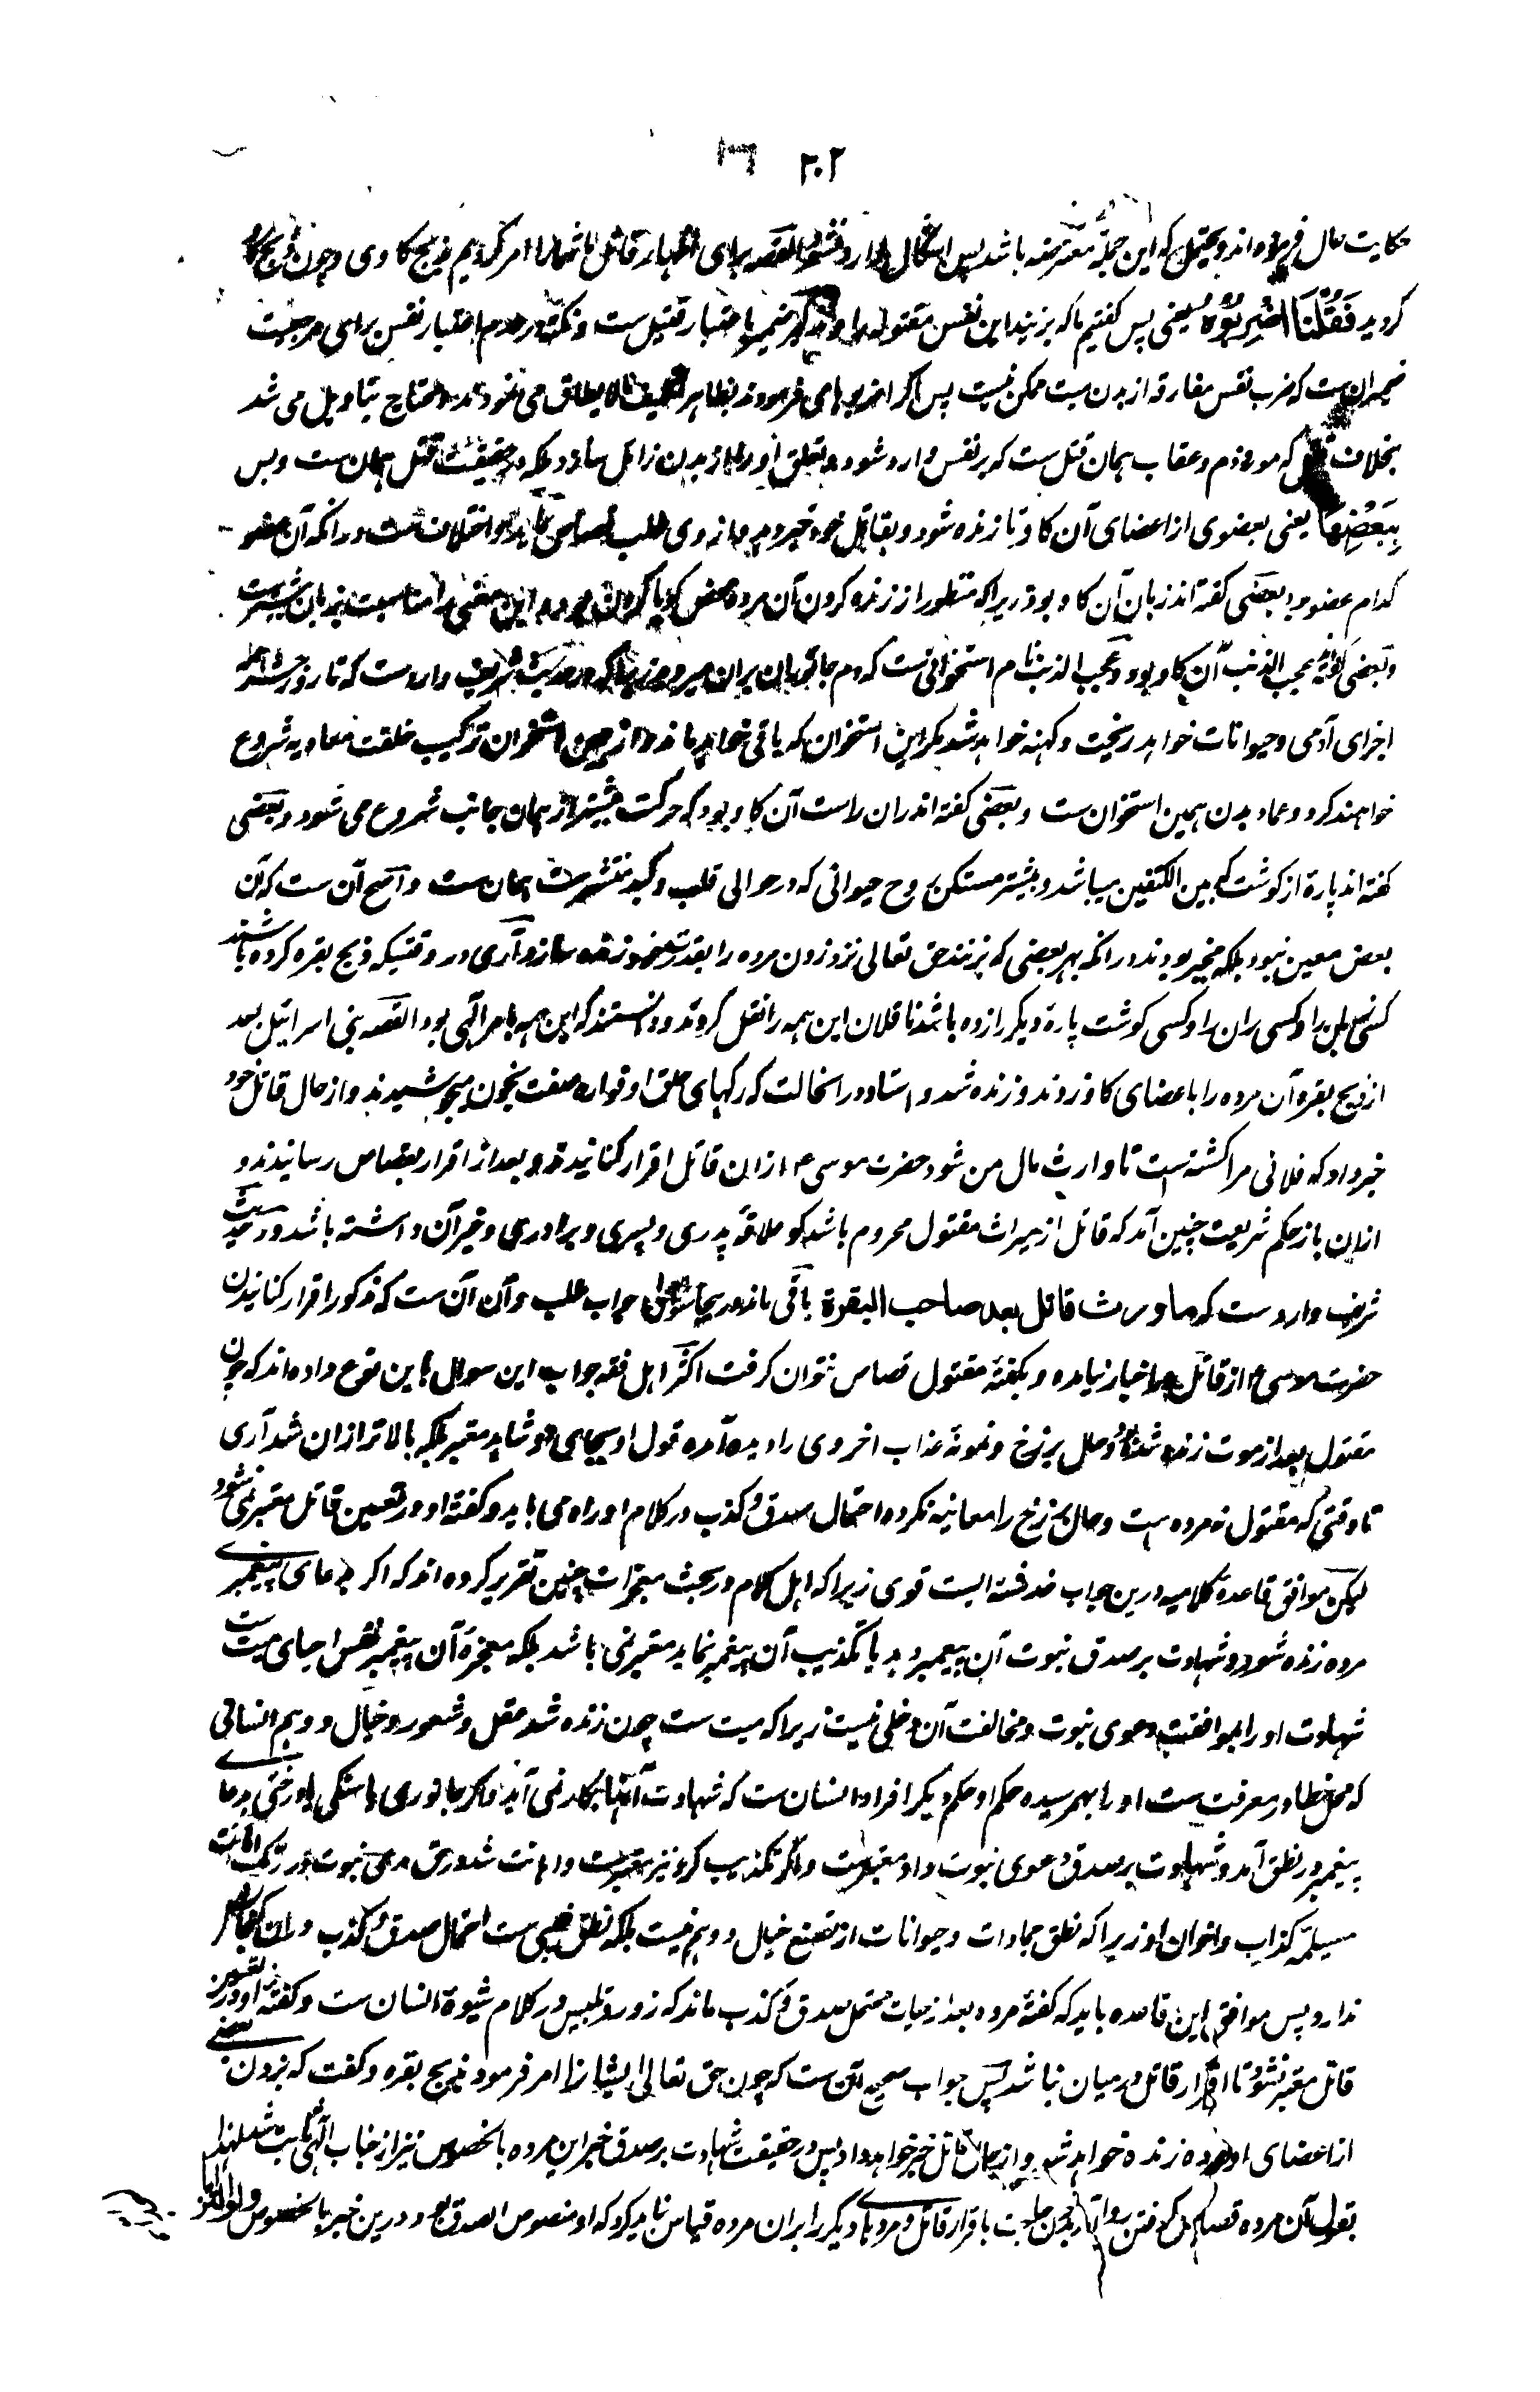 ۳۰۲
حکایت حال فرموده اند و یحتمل که این جمله معترضه باشد پس اشکال وارد نشود القصه برای اظهار قاتل شما را امر کردیم بذبح کاوی و چون ذبح کاو
کردید فَقُلْنَا اضْرِبُوْهُ یعنی پس کفتیم ما که بزنید این نفس مقتوله را و تذکیر ضمیر باعتبار قتیل ست و نکته در عدم اعتبار نفس برای مرجعیت
ضمیر ان ست که ضرب نفس مفارقه از بدن میت ممکن نیست پس اکر اضربوها می فرمودند بظاهر تکلیف مالا یطاق می نمود و محتاج بتاویل می شد
بخلاف که مورد ذم و عقاب همان قتل ست که بر نفس وارد شود و تعلق او را از بدن زائل سازد بلکه در حقیقت قتل همان ست و بس
بِبَعْضِهَا یعنی بعضوی از اعضای آن کاو تا زنده شود و بقاتل خود خبر دهد و از وی طلب قصاص نماید و اختلاف ست در انکه آن عضو
کدام عضو بود بعضی کفته اند زبان آن کاو بود زیرا که منظور از زنده کردن آن مرده محض کویا کردن بود و این معنی را مناسبت بزبان بیشترست
و بعضی کفته اند عجب الذنب آن کاو بود و عجب الذنب نام استخوانی ست که دم جانوران بران میروید زیرا که در حدیث شریف وارد ست که تا روز حشر همه
اجزای آدمی و حیوانات خواهد ریخت و کهنه خواهد شد مکر این استخوان که باقی خواهد ماند و از همین استخوان ترکیب خلقت معادیه شروع
خواهند کرد و عماد بدن همین استخوان ست و بعضی کفته اند ران راست آن کاو بود که حرکت بیشتر از همان جانب شروع می شود و بعضی
کفته اند پارۀ از کوشت که بین الکتفین میباشد و بیشتر مسکن روح حیوانی که در حوالی قلب و کبد منتشر ست همان ست و اصح آن ست که آن
بعض معین نبود بلکه مخیر بودند در انکه بهر بعضی که بزنند حق تعالی نزد زدن مرده را بقدرت خود زنده سازد آری در وقتیکه ذبح بقره کرده باشند
کسی زبان را و کسی ران را و کسی کوشت پارۀ دیکر را زده باشد ناقلان این همه را نقل کردند و دانستند که این همه بامر الهی بود القصه بنی اسرائیل بعد
از ذبح بقره آن مرده را باعضای کاو زدند و زنده شد و استاد در انحالت که رکهای حلق او فواره صفت بخون میجوشیدند و از حال قاتل خود
خبر داد که فلانی مرا کشته است تا وارث مال من شود حضرت موسی ع ازان قاتل اقرار کنانیدند و بعد از اقرار بقصاص رسانیدند و
ازان باز حکم شریعت چنین آمد که قاتل از میراث مقتول محروم باشد کو علاقه پدری و پسری و برادری و غیر آن داشته باشد و در حدیث
شریف وارد ست که ما ورث قاتل بعد صاحب البقرة باقی ماند در ینجا سوالی جواب طلب و آن آن ست که مذکور اقرار کنانیدن
حضرت موسی ع از قاتل در اخبار نیامده و بکفتۀ مقتول قصاص نتوان کرفت اکثر اهل فقه جواب این سوال باین نوع داده اند که چون
مقتول بعد از موت زنده شد و حال برزخ و نمونۀ عذاب اخروی را دیده آمده قول او بجای دو شاهد معتبر بلکه بالاتر ازان شد آری
تا وقتی که مقتول نمرده است و حال برزخ را معاینه نکرده احتمال صدق و کذب در کلام او راه می یابد و کفتۀ او در تعیین قاتل معتبر نمی شود
لیکن موافق قاعدۀ کلامیه درین جواب خدشه ایست قوی زیرا که اهل کلام در بحث معجزات چنین تقریر کرده اند که اکر بدعای پیغمبری
مرده زنده شود و شهادت بر صدق نبوت آن پیغمبر دهد یا تکذیب آن پیغمبر نماید معتبر نمی باشد بلکه معجزۀ آن پیغمبر نفس احیای میت ست
شهادت او را بموافقت دعوی نبوت و مخالفت آن دخلی نیست زیرا که میت ست چون زنده شد عقل و شعور و خیال و وهم انسانی
که محل خطا در معرفت ست او را بهم رسیده حکم او حکم دیکر افراد انسان ست که شهادت آنها بکار نمی آید و اکر جانوری یا سنکی یا درختی بدعای
پیغمبر در نطق آمد و شهادت بر صدق دعوی نبوت داد معتبرست و اکر تکذیب کرد نیز معتبرست و اهانت شد در حق مدعی نبوت در رنک اهانت
مسیلمه کذاب و اخوان او زیرا که نطق جمادات و حیوانات از تصنع خیال و وهم نیست بلکه نطق غیبی ست احتمال صدق و کذب دران کنجایش
ندارد پس موافق این قاعده باید که کفتۀ مرده بعد از حیات محتمل صدق و کذب ماند که زور و تلبیس در کلام شیوۀ انسان ست و کفتۀ او در تعیین
قاتل معتبر نشود تا اقرار قاتل درمیان نباشد پس جواب صحیح آن ست که چون حق تعالی ایشانرا امر فرمود بذبح بقره و کفت که بزدن بعضی
از اعضای او مرده زنده خواهد شد و از حال قاتل خبر خواهد داد پس در حقیقت شهادت بر صدق خبر این مرده بالخصوص نیز از جناب الهی ثابت شد لهذا
بقول آن مرده قصاص کرفتن روا باقرار قاتل و مردهای دیکر را بران مرده قیاس نباید کرد که او منصوص الصدق بود درین خبر بالخصوص